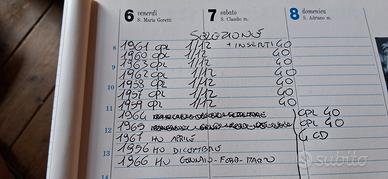 6 venerdì
S. Maria Goretti
7 sabato
S. Claudio m.
8 domenica
S. Adriano m.
SELEZIONE
1961 CPL 1/12 + INSERTI 40
1960 CPL 1/12 40
1963 CPL 1/12 40
1962 CPL 1/12 40
1958 CPL 1/12 40
1957 CPL 1/12 40
1959 CPL 1/12 40
1964 CPL 40
1969 CPL 40
1967 HO APRILE 4 CD
1956 HO DICEMBRE
1966 HO GENNAIO-FEBB-MARZO
subito